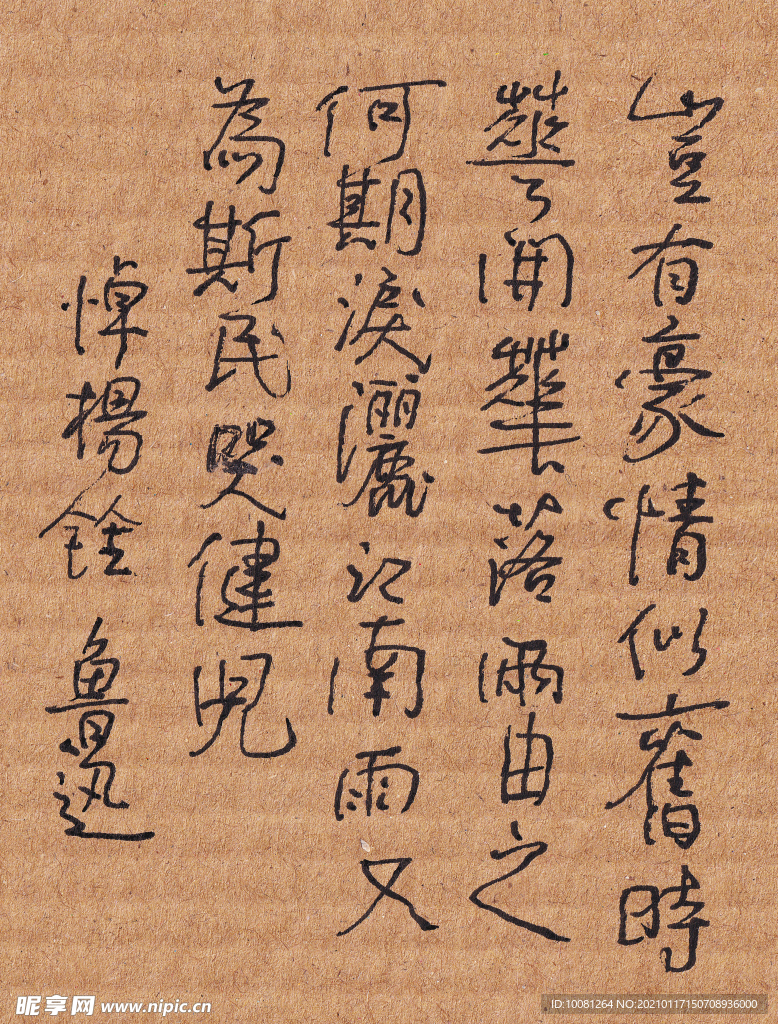 豈有豪情似舊時
華開華落兩由之
何期淚灑江南雨又
為斯民哭健兒
悼楊銓 魯迅
昵享网 www.nipic.cn
ID:10081264 NO:20210117150708936000